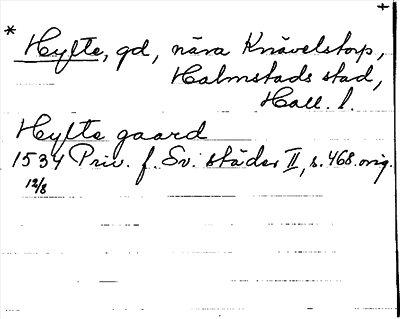 +
* Hyfte, gd, nära Knävelstorp,
Halmstads stad,
Hall. l.
Hyfte gaard
1534 Priv. f. Sv. städer II, s. 468. orig.
12/8